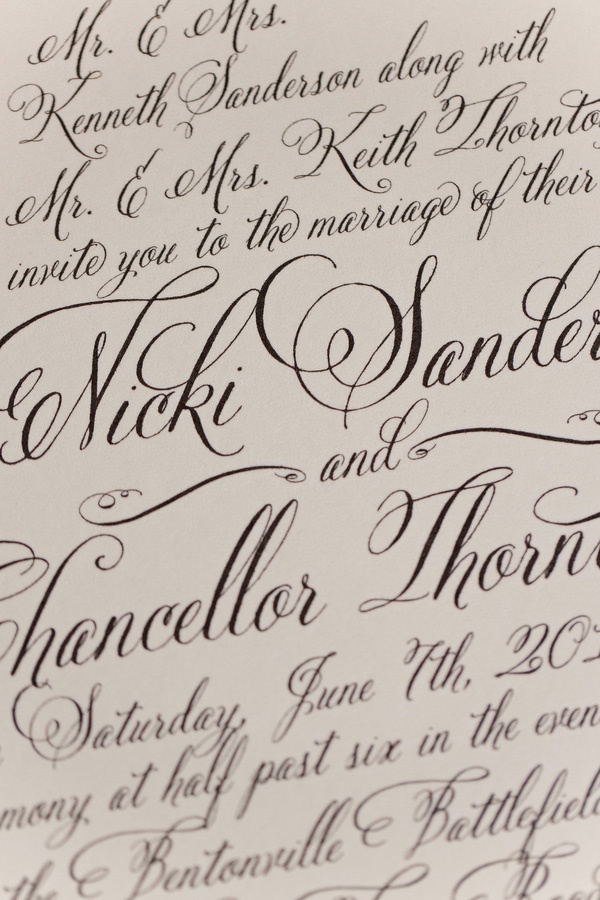 Mr. & Mrs.
Kenneth Sanderson along with
Mr. & Mrs. Keith Thornto
invite you to the marriage of their
Nicki Sander
and
Chancellor Thornt
Saturday, June 7th, 201
mony at half past six in the even
the Bentonville Battlefield